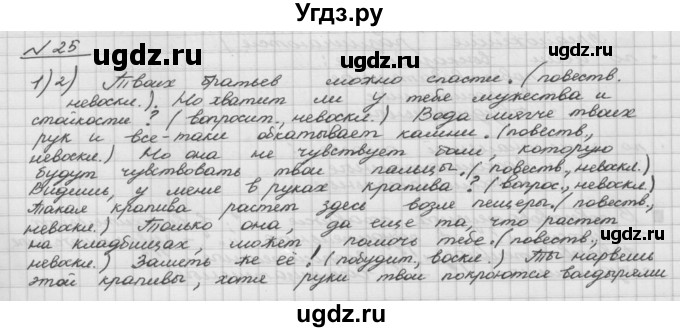 Угдз.ру
№25
1)2) Твоих братьев можно спасти. (повеств.
невоскл.). Но хватит ли у тебя мужества и
стойкости? (вопросит., невоскл.) Вода мягче твоих
рук и все-таки обкатывает камни. (повеств.,
невоскл.) Но она не чувствует боли, которую
будут чувствовать твои пальцы. (повеств., невоскл.)
Видишь, у меня в руках крапива? (вопрос., невоскл.)
Такая крапива растет здесь возле пещеры. (повеств.,
невоскл.) Только она, да еще та, что растет
на кладбищах, может помочь тебе. (повеств.,
невоскл.) Заметь же её! (побудит., воскл.) Ты нарвешь
этой крапивы, хотя руки твои покроются волдырями
ugdz.ru
ugdz.ru
ugdz.ru
ugdz.ru
ugdz.ru
ugdz.ru
ugdz.ru
ugdz.ru
ugdz.ru
ugdz.ru
ugdz.ru